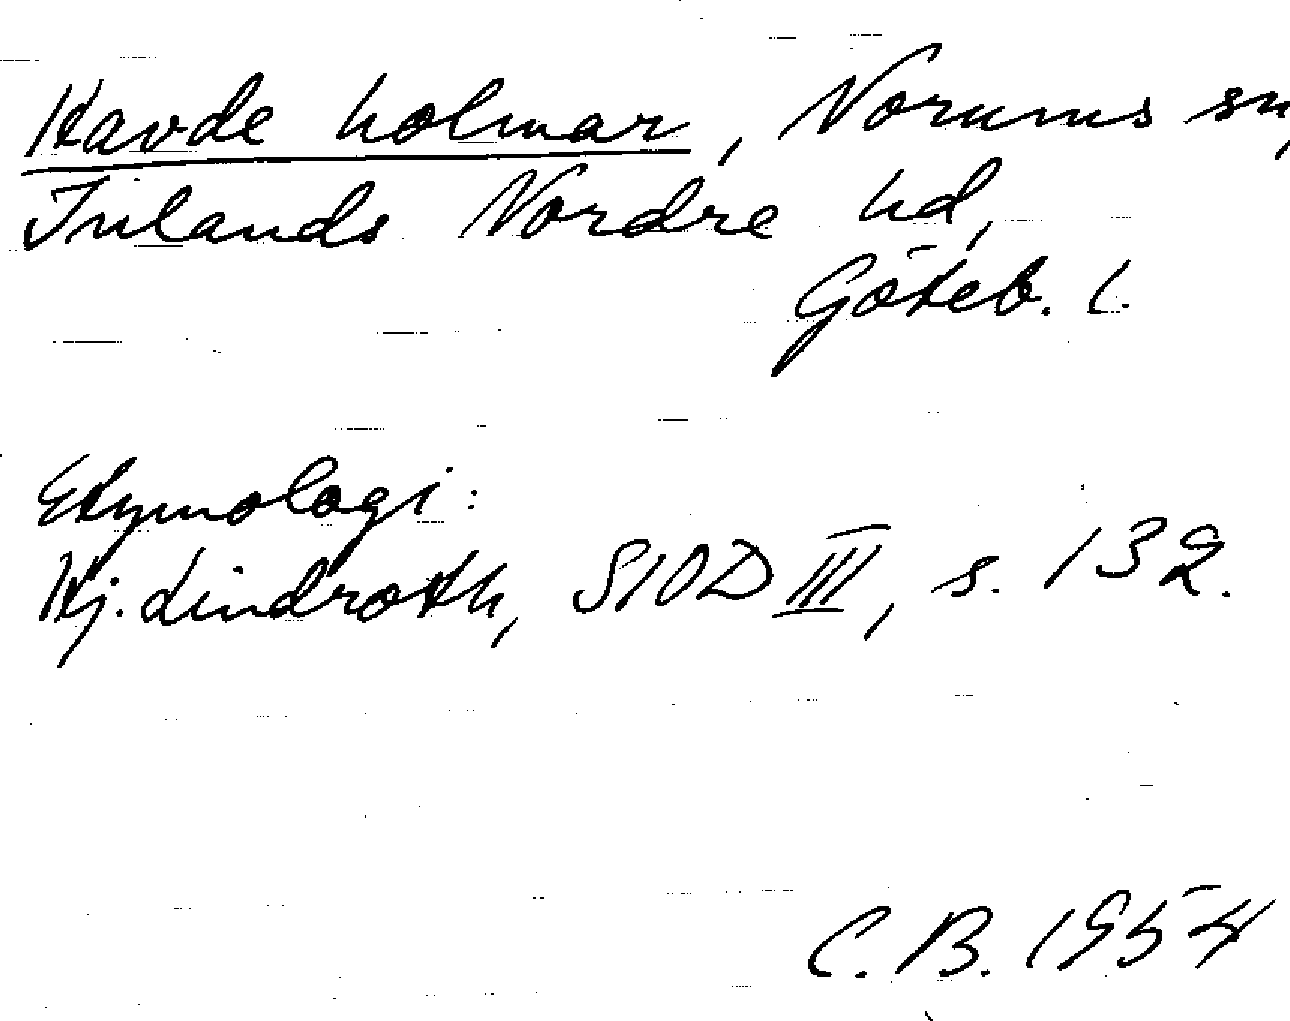 Havde holmar, Norums sn,
Inlands Nordre hd,
Göteb. l.
Etymologi:
Hj. Lindroth, SIOD III, s. 132.
C.B. 1954